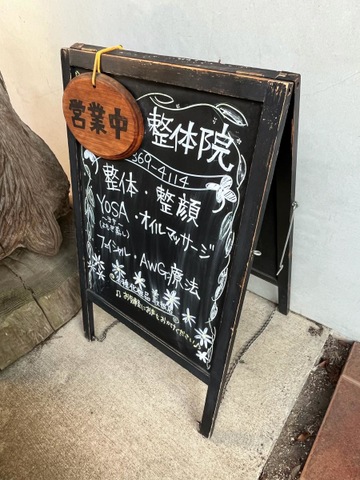 営業中
整体院
369-4114
整体・整顔
YOSA・オイルマッサージ
(よもぎ蒸し)
フェイシャル・AWG療法